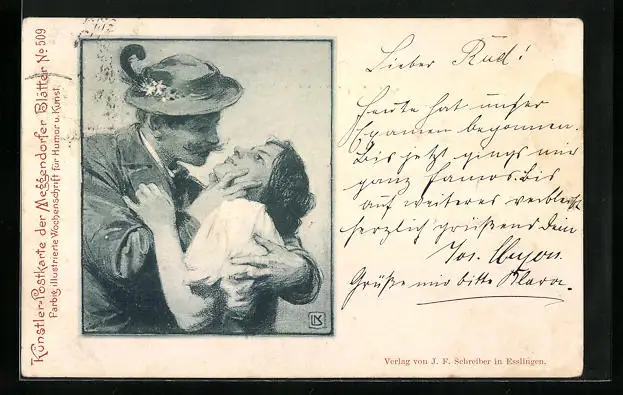 Künstler-Postkarte der Meggendorfer Blätter No 509
Farbig illustrierte Wochenschrift für Humor u. Kunst.
Lieber Rud!
Heute hat unser
Examen begonnen.
Bis jetzt gings mir
ganz famos. Bis
auf weiteres verbleibt
herzlich grüßend Dein
Jos.
Grüße mir bitte Klara.
Verlag von J. F. Schreiber in Esslingen.